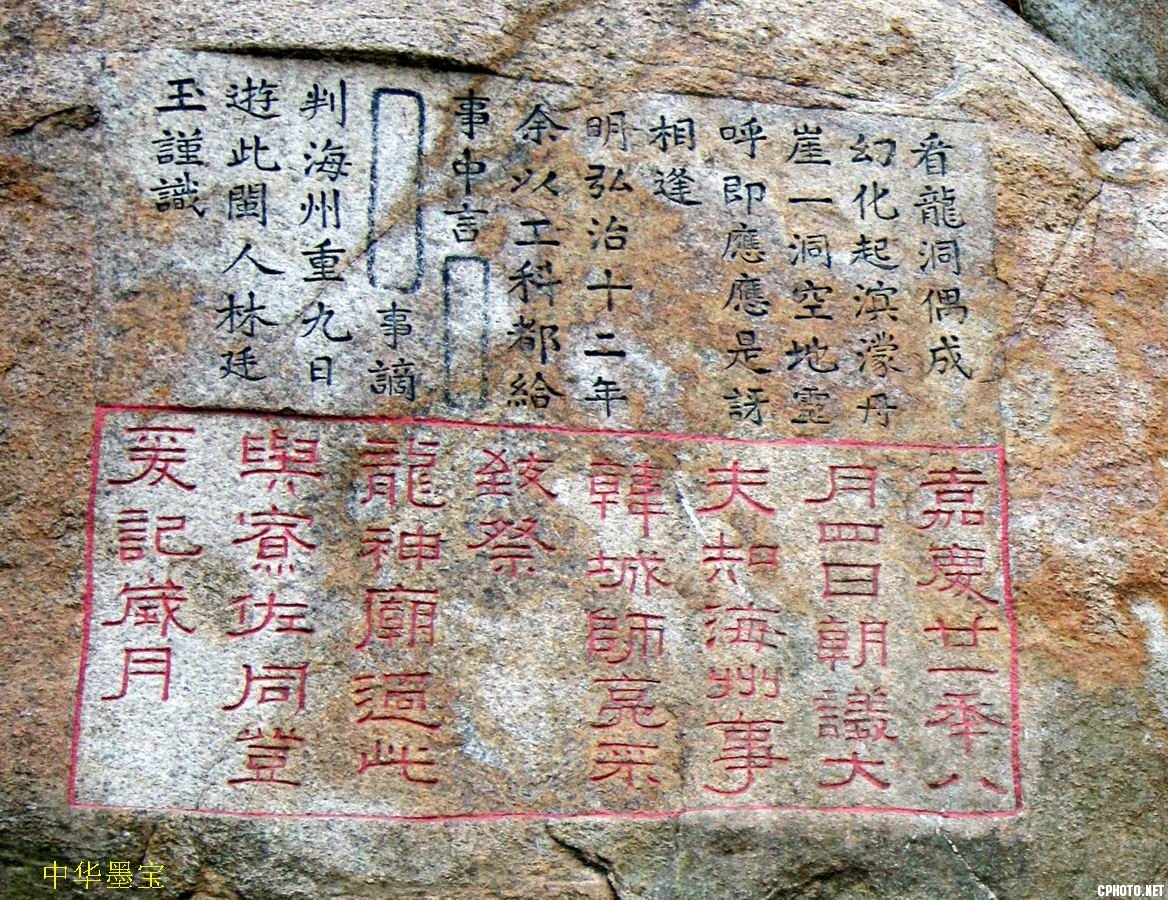 看龍洞偶成
幻化起滨濛丹
崖一洞空地霊
呼即應應是訝
相逢
明弘治十二年
余以工科都給
事中言
事謫
判海州重九日
遊此閩人林廷
玉謹識
嘉慶廿一秊八
月四日朝議大
夫知海州事
韓城師亮采
致祭
龍神廟過此
與寮佐同登
爰記歲月
中华墨宝
CPHOTO.NET